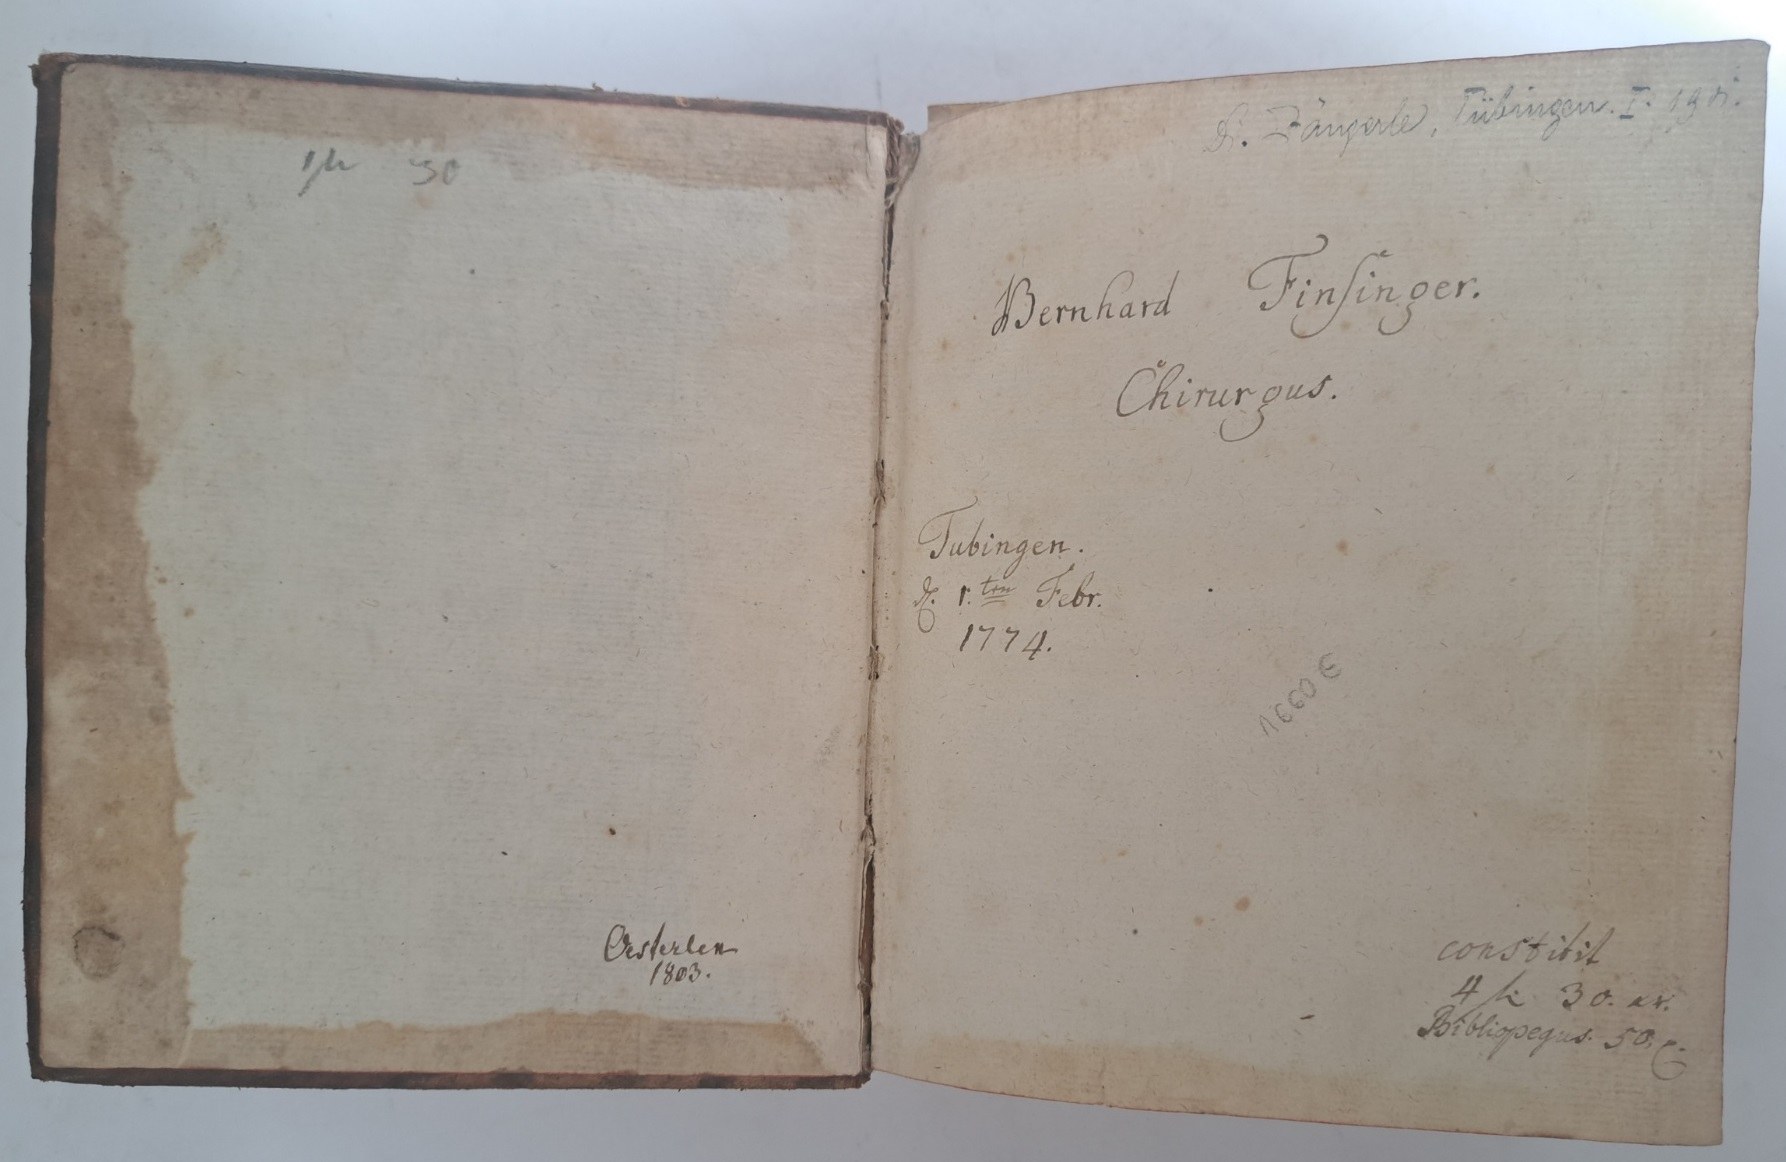 30
Oesterlen
1803.
Zängerle, Tübingen. I.
Bernhard Finsinger.
Chirurgus.
Tubingen.
d. 1. ten Febr.
1774.
1660 €
constitit
4 fl 30. xr.
Bibliopegus. 50. c.